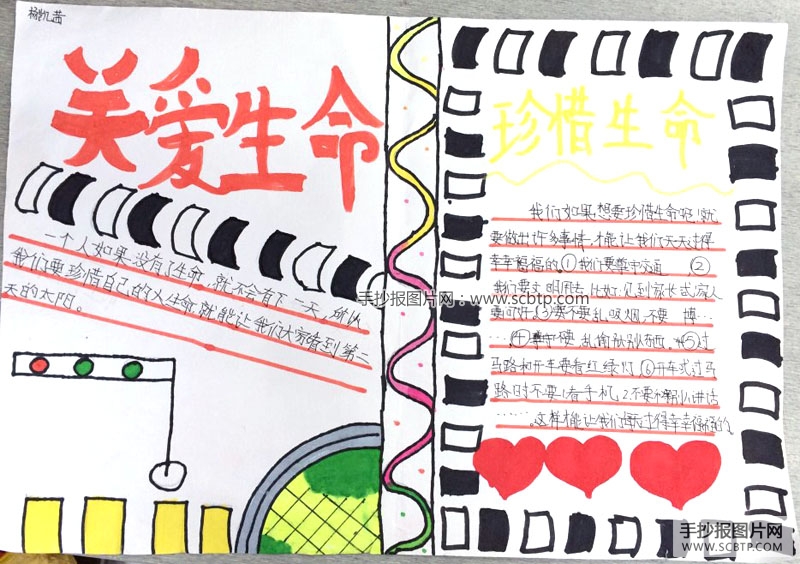 杨凯茜
关爱生命
一个人如果没有了生命,就不会有下一天,所以
我们要珍惜自己的人生命,就能让我们大家看到第二
天的太阳。
珍惜生命
我们如果想要珍惜生命呢!就
要做出许多事情,才能让我们天天过得
幸幸福福的。①我们要遵守交通 ②
我们要文明用
要 不要乱吸烟,不要
④ 乱 别 东西, ⑤过
马路和开车要看红绿灯⑥开车或过马
路时不要1看手机,2.不要和别人讲话
……这样才能让我们 过得幸幸福福的。
手抄报图片网:www.scbtp.com
手抄报图片网
WWW.SCBTP.COM